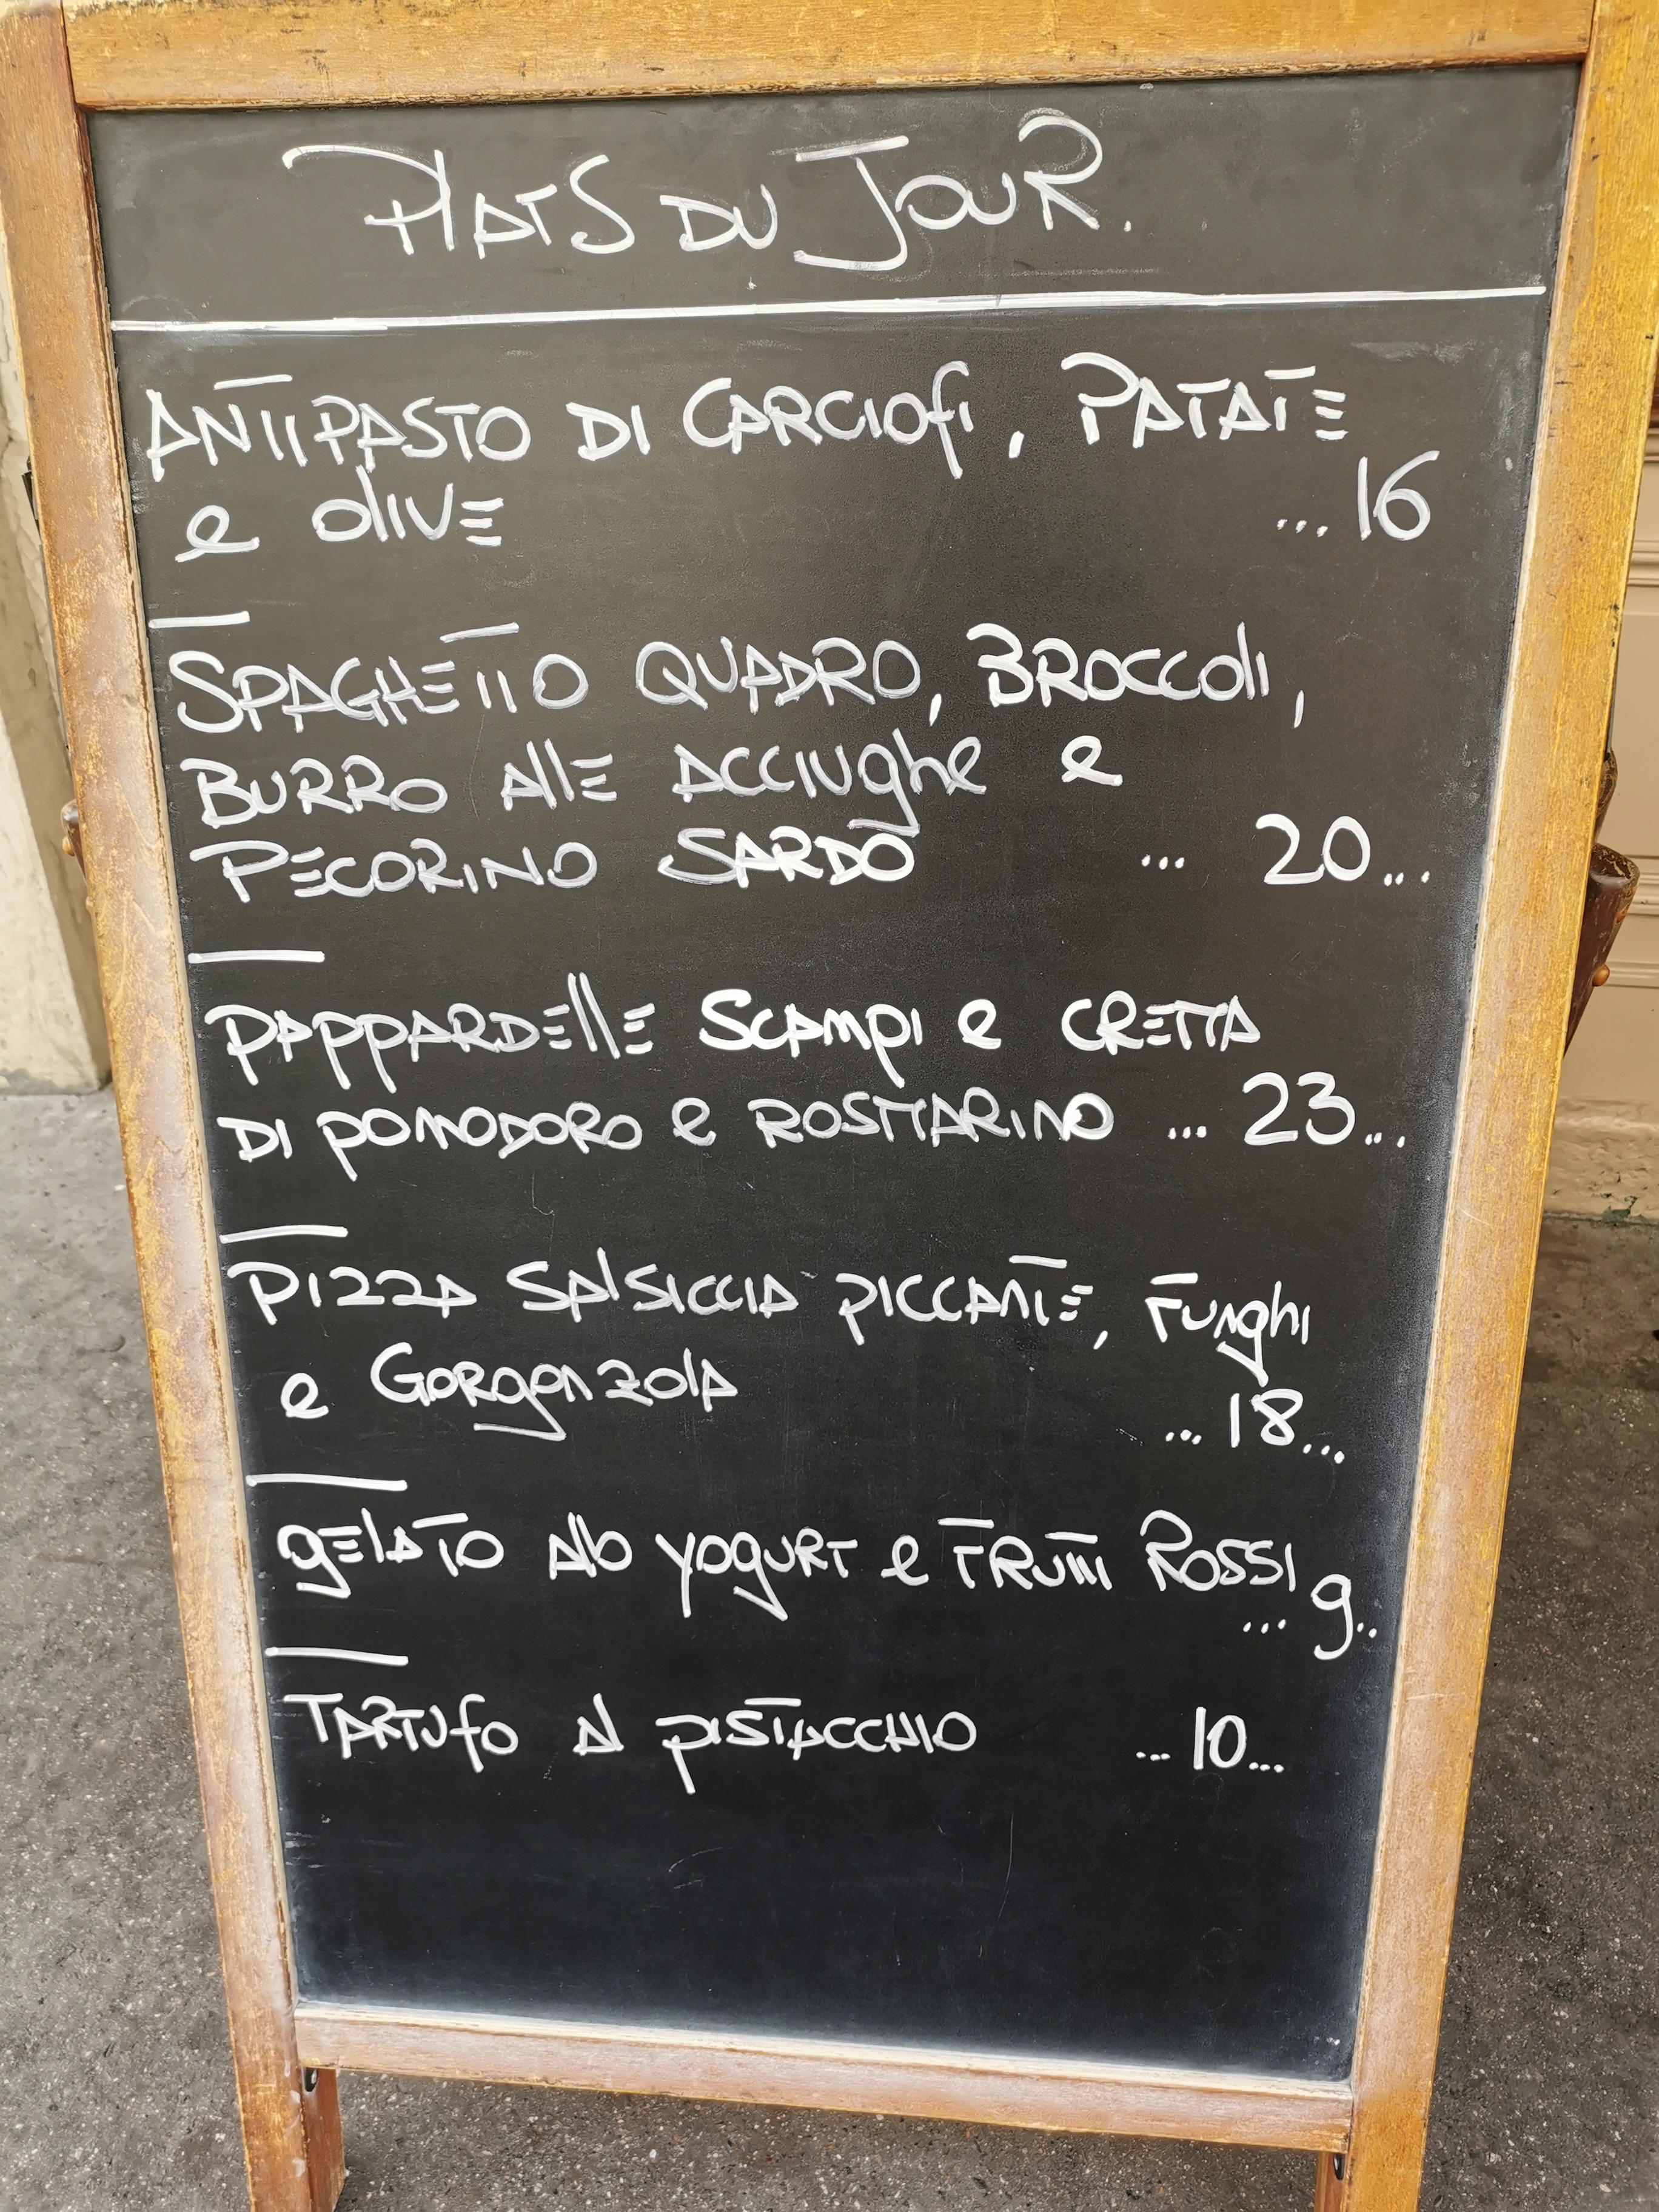 PlATS DU JOUR.
ANTIPASTO DI CARCIOfi, PATATE
e OlIVE ...16
SPAGHETTO QUADRO, BROCCOlI,
BURRO AllE ACCIUghe e
PECORINO SARDO ... 20...
PAPPARDEllE SCAMPI e CREMA
DI POMODORO e ROSMARINO ... 23...
PIZZA SAlSICCIA PICCANTE, FUNghI
e GORgONZOlA ...18...
gElATO AllO yOgURT e FRUTTI ROSSI
... 9..
TARTUfO Al PISTACCHIO ...10...